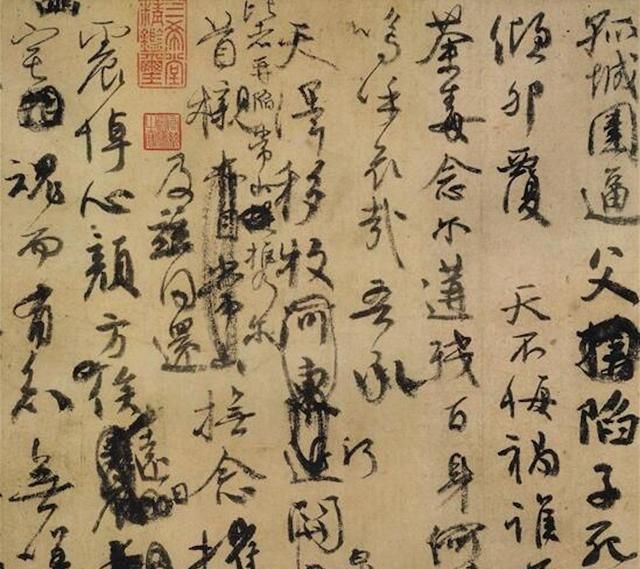 孤城圍逼父陷子死
傾卵覆天不悔禍誰
荼毒念爾遘殘百身何
嗚呼哀哉吾承
天澤移牧河東近關
比者再陷常山攜爾
首櫬亦自常山撫念摧
及茲同還
震悼心顏方俟
遠日
宅魂而有知無嗟
三希堂精鑑璽